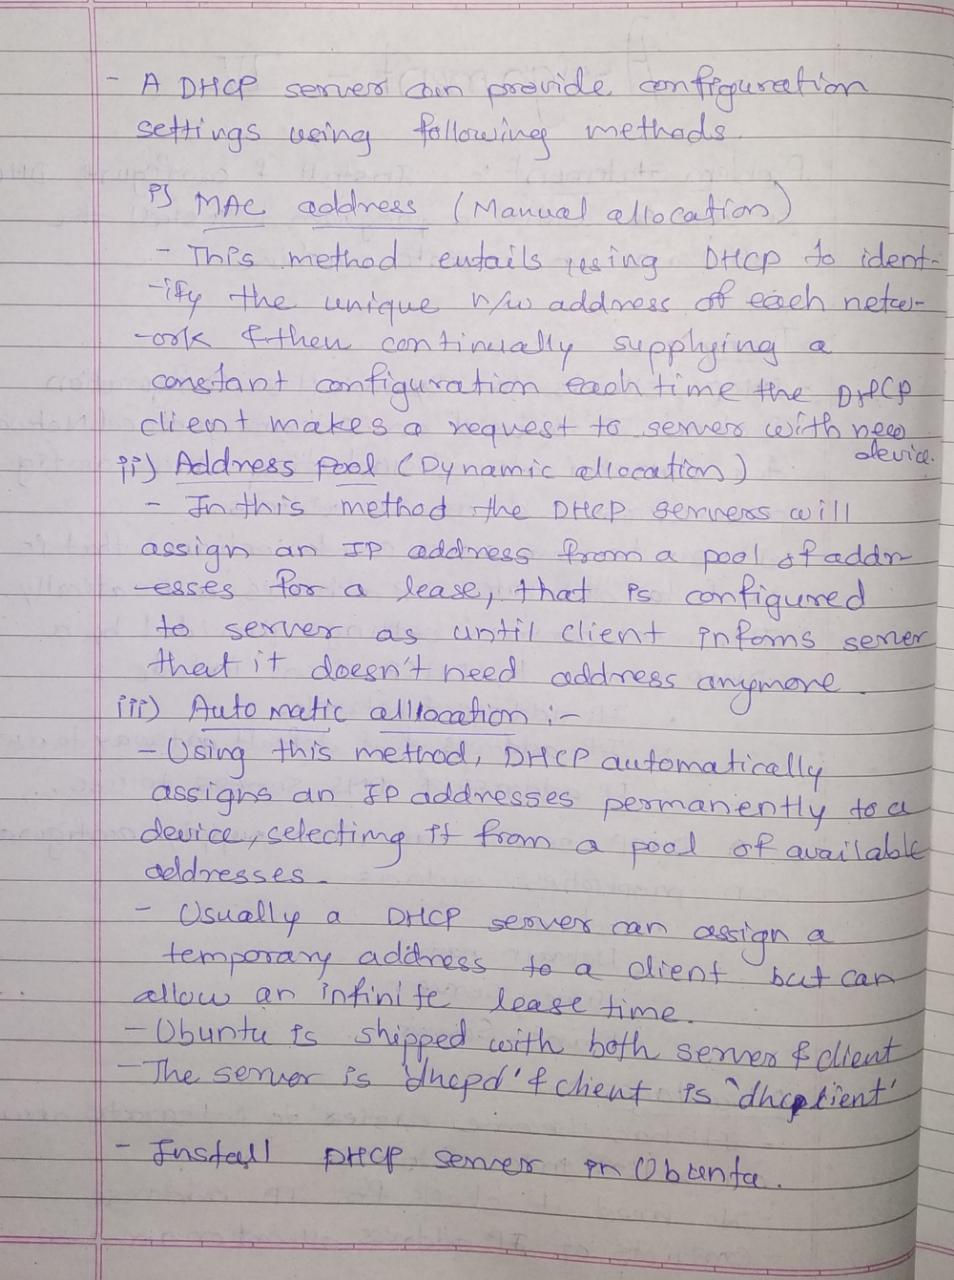 - A DHCP server can provide configuration
settings using following methods.
i) MAC address (Manual allocation)
- This method entails using DHCP to ident-
-ify the unique n/w address of each netw-
-ork & then continually supplying a
constant configuration each time the DHCP
client makes a request to server with new
device.
ii) Address Pool (Dynamic allocation)
- In this method the DHCP servers will
assign an IP address from a pool of addr
-esses for a lease, that is configured
to server as until client informs server
that it doesn't need address anymore.
iii) Automatic alllocation :-
- Using this method, DHCP automatically
assigns an IP addresses permanently to a
device, selecting it from a pool of available
addresses.
- Usually a DHCP server can assign a
temporary address to a client but can
allow an infinite lease time.
- Ubuntu is shipped with both server & client
- The server is 'dhcpd' & client is 'dhcplient'
- Install DHCP server in Ubuntu.